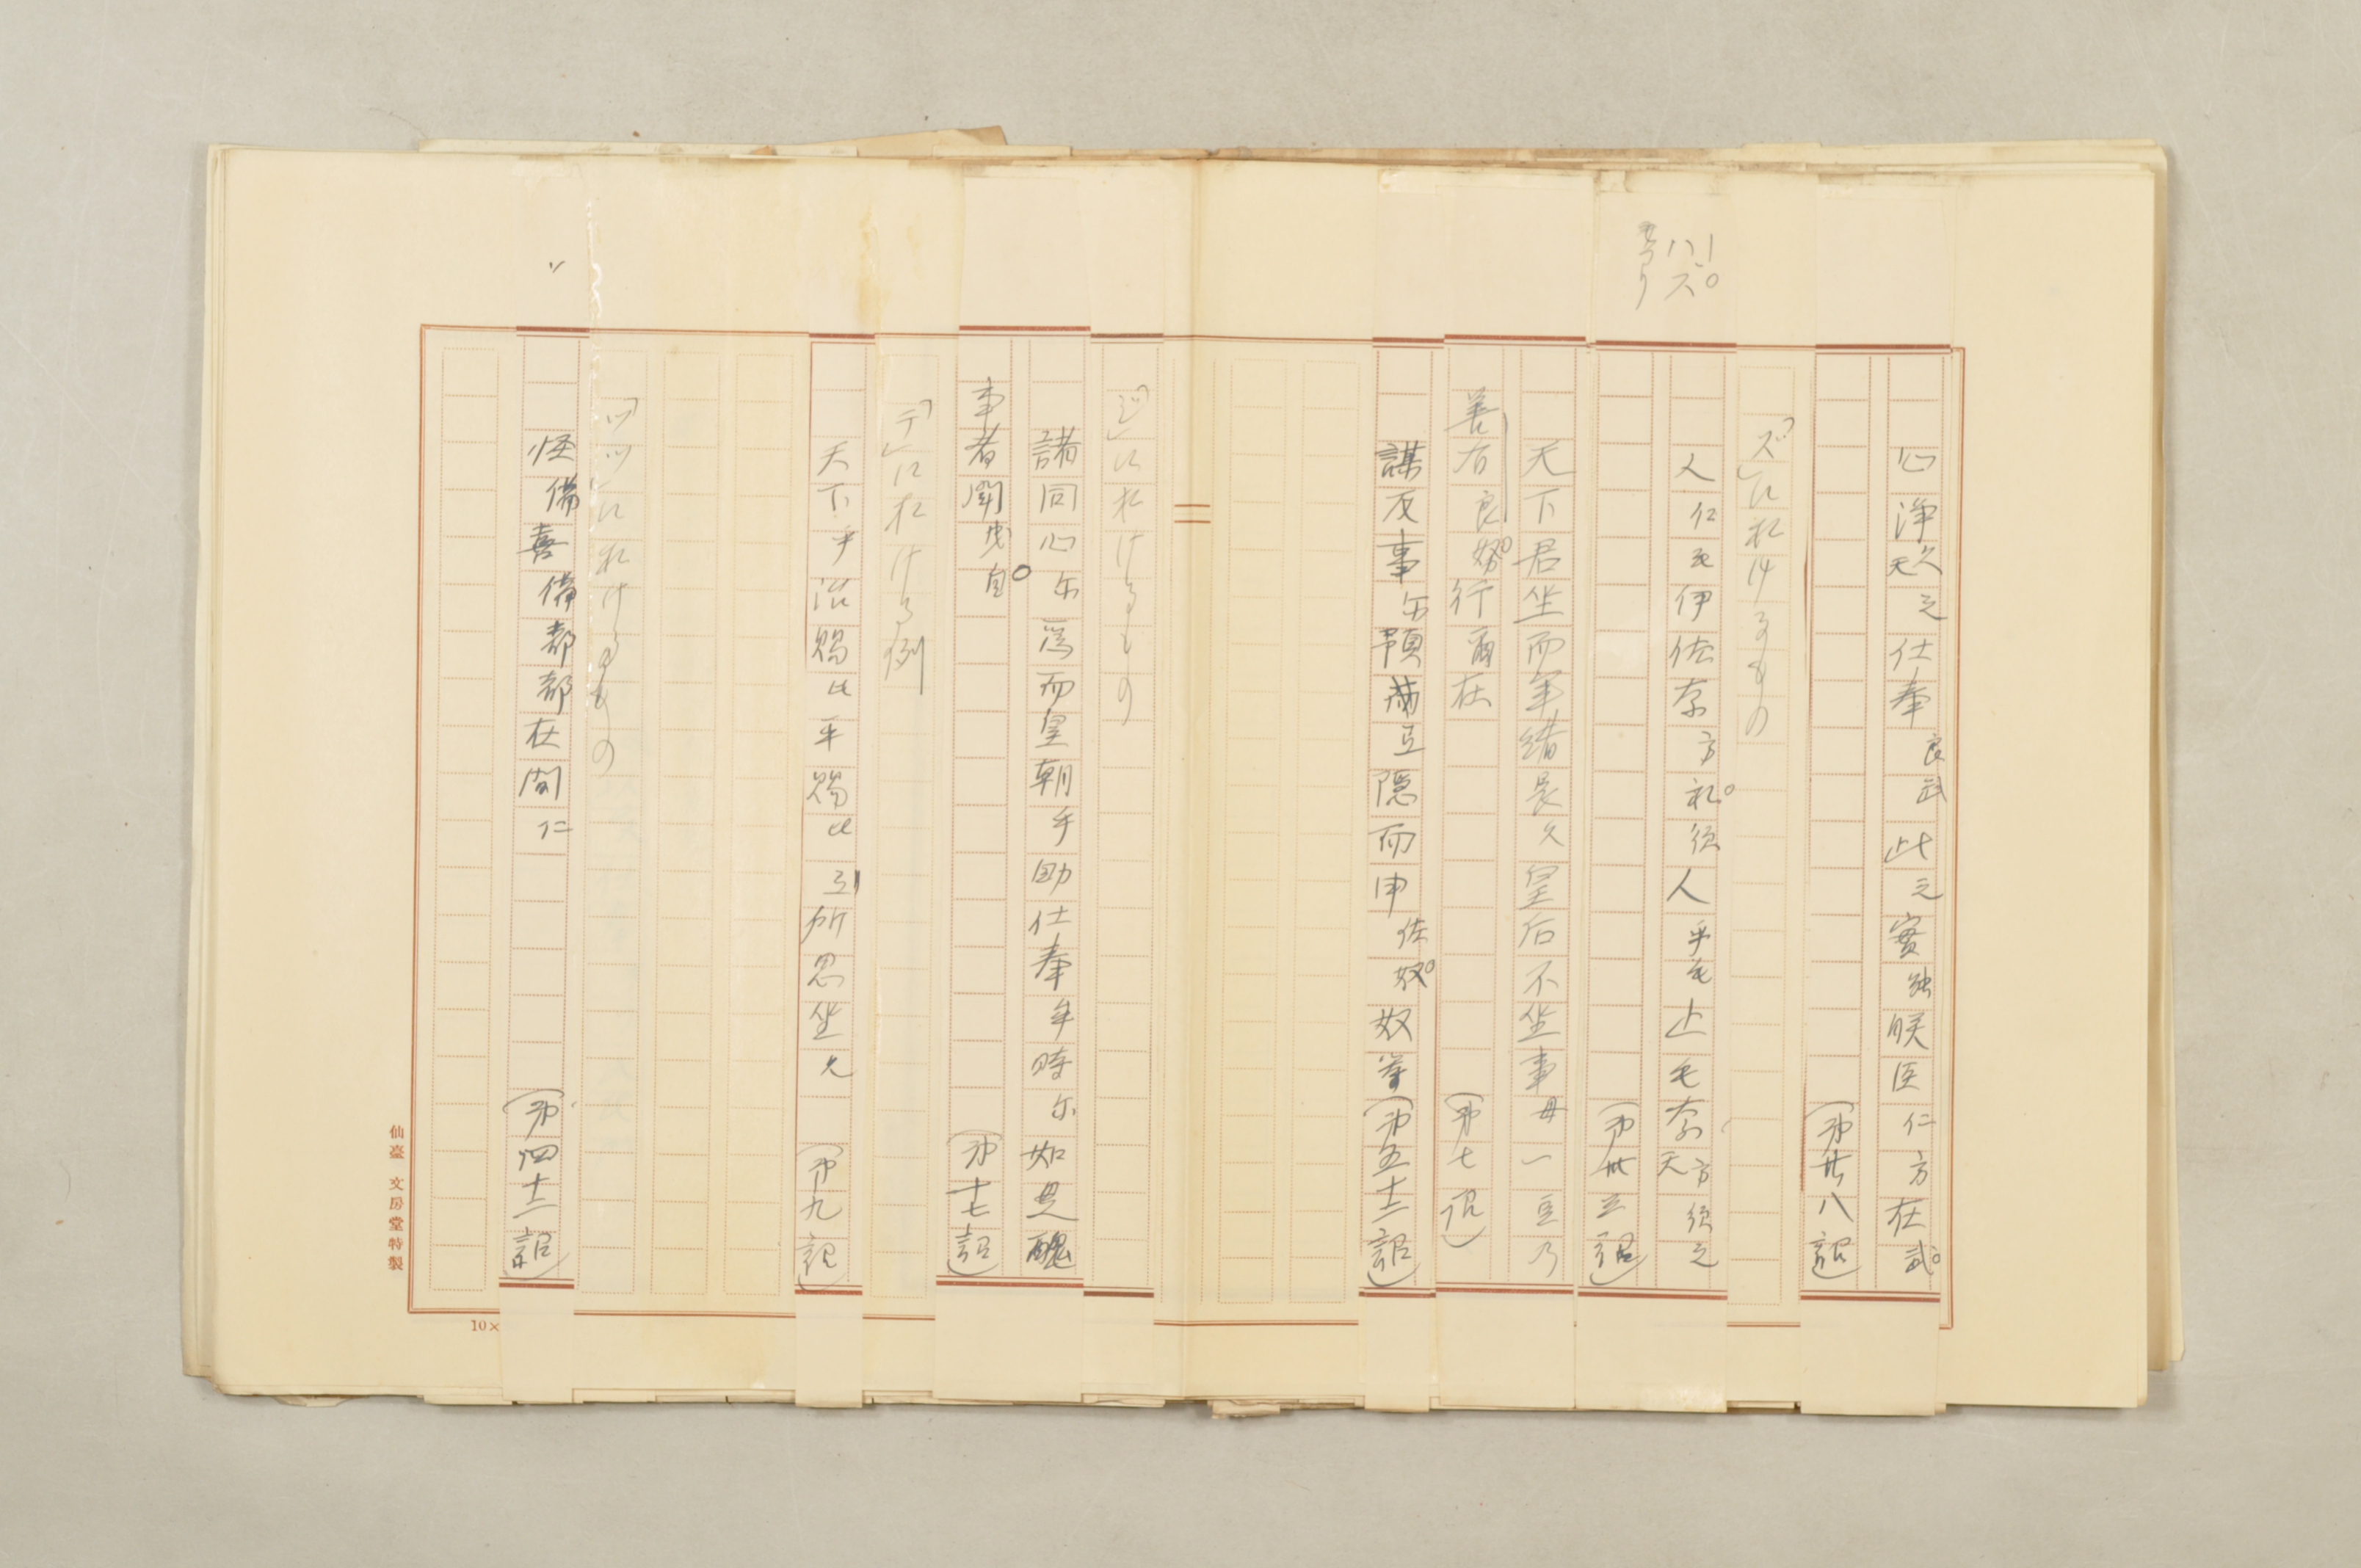 心淨久天之仕奉良武此之實能朕医仁方在武
(第廿八詔)
「ズ」に於けるもの
人仁毛伊佐奈方礼須人乎毛止毛奈方須之天
(第卅三詔)
天下君坐而年緒長久皇后不坐事母一豆乃
善有良努行尓在 (第七詔)
謀反事尓預而豆隠而申佐奴奴等(第五十三詔)
「ジ」に於けるもの
諸同心尓為而皇朝乎助仕奉牟時尓如是醜
事者聞曳自 (第十七詔)
「テ」に於ける例
天下乎治賜比平賜比弖所思坐久 (第九詔)
「ツツ」に於けるもの
怪備喜備都都在間仁 (第四十二詔)
仙臺 文房堂特製
10×